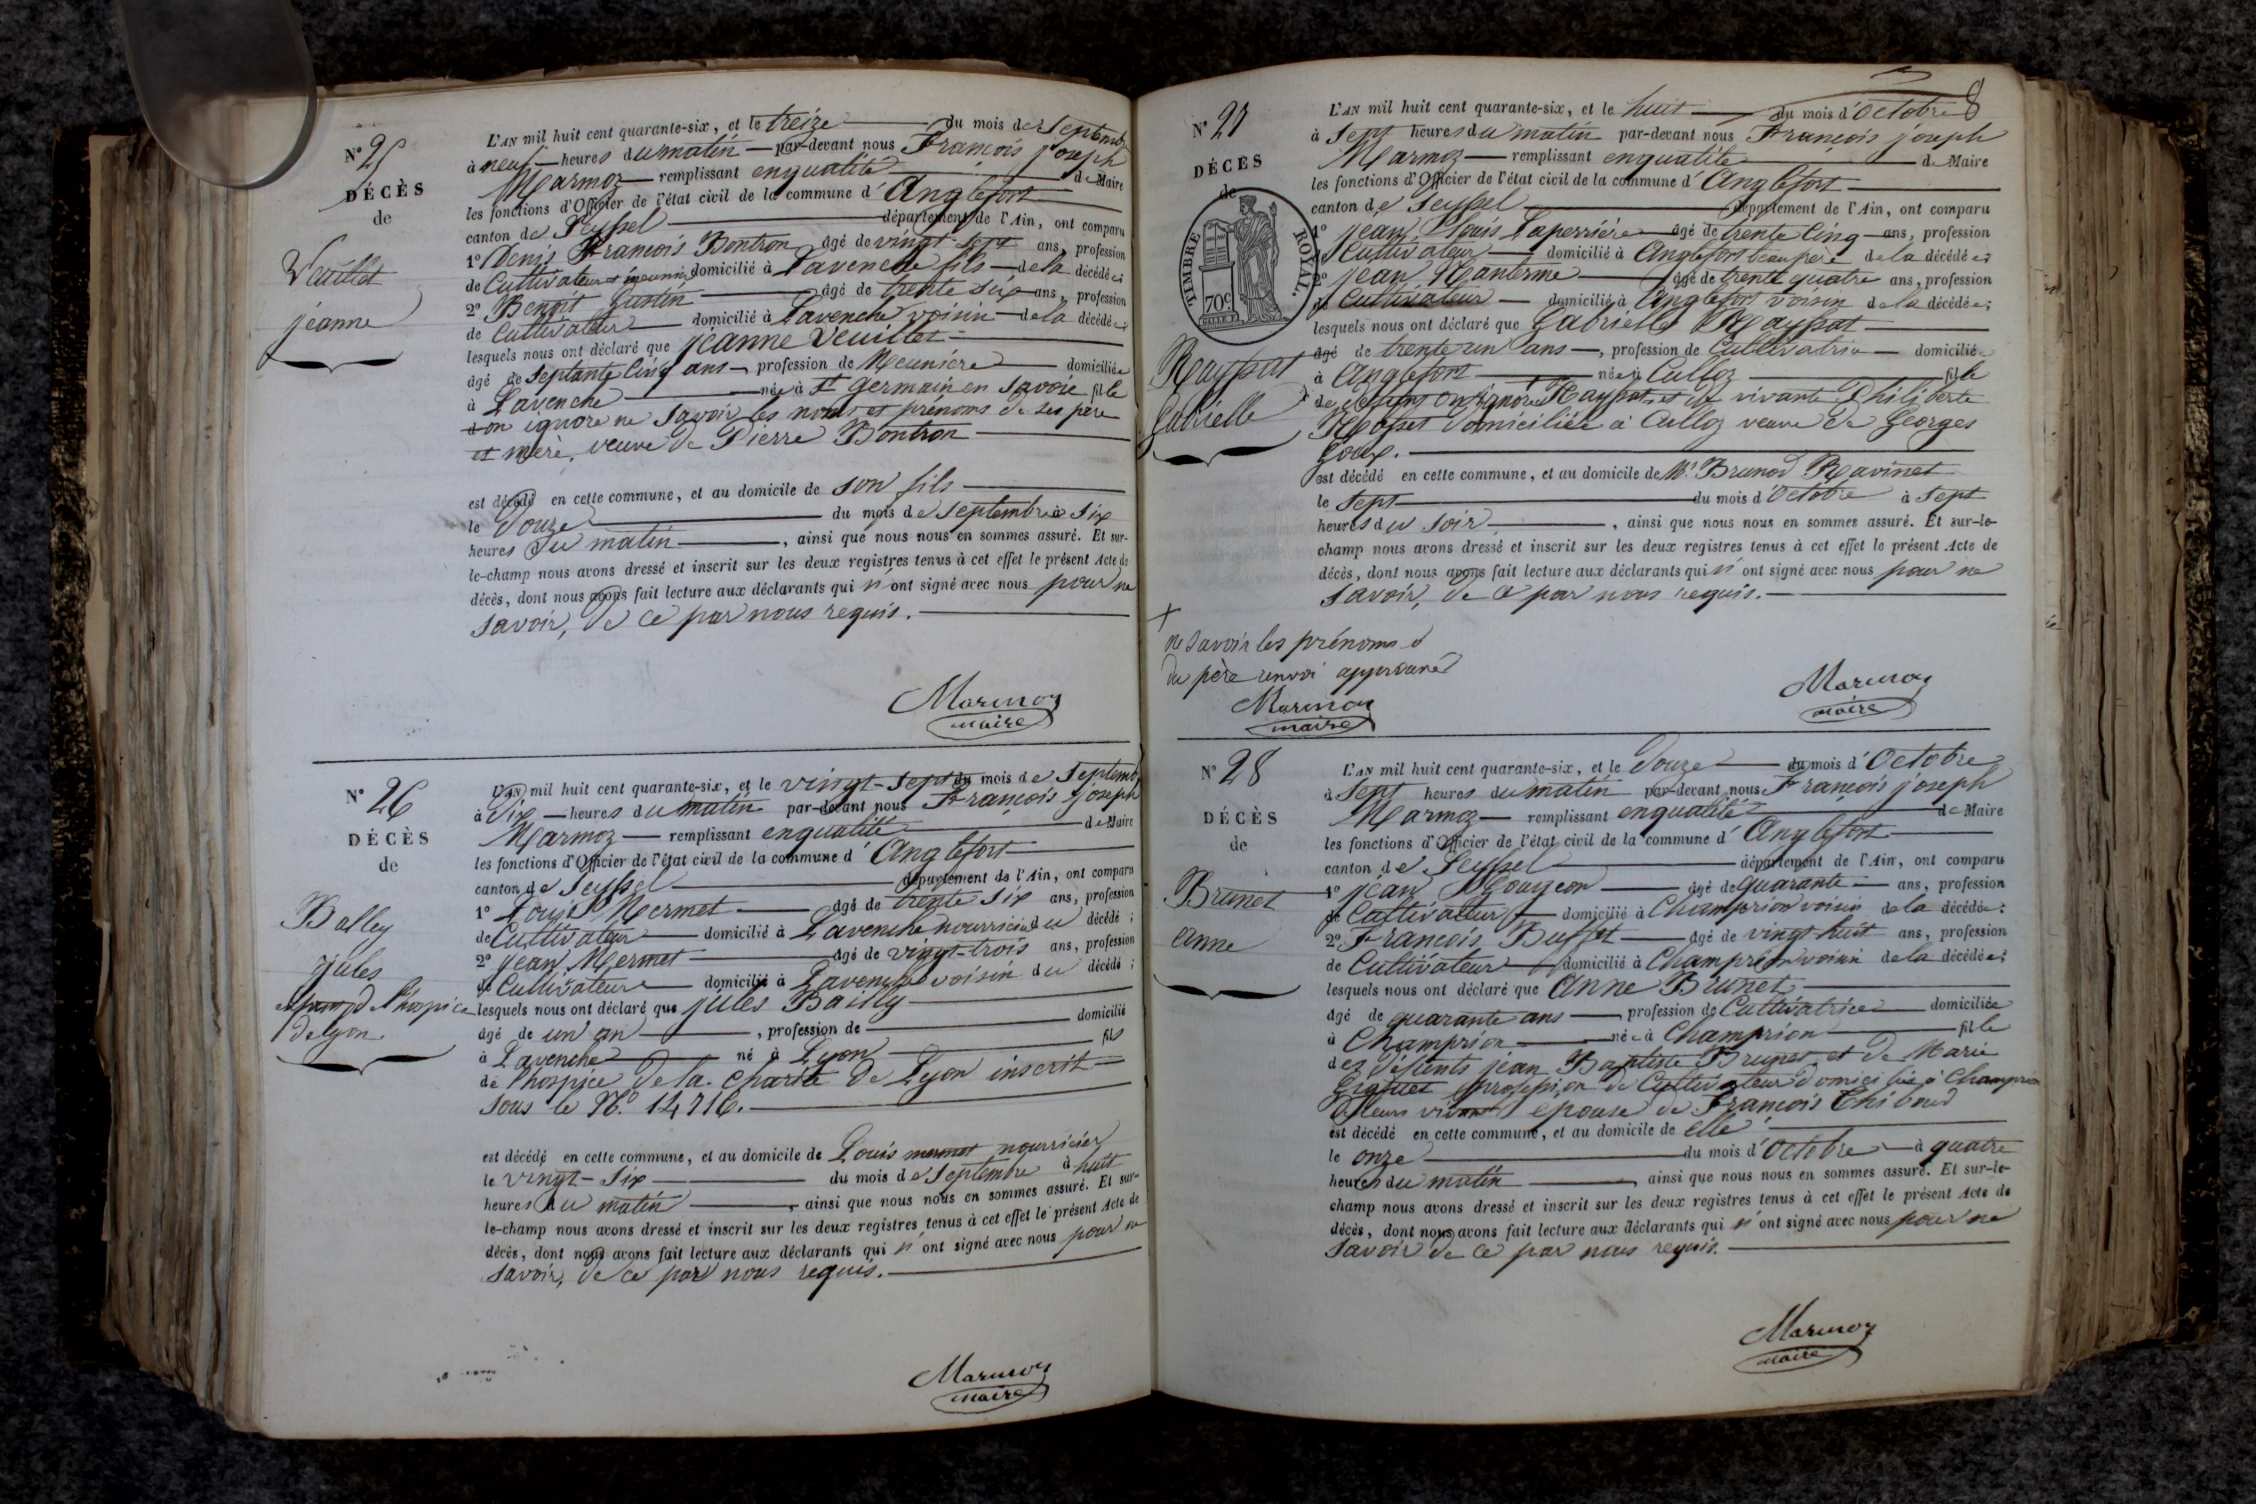 N° 25
DÉCÈS
de
Veuillet
jeanne
L'AN mil huit cent quarante-six, et le treize du mois de Septembre
à neuf heures du matin par-devant nous François joseph
Marmoz remplissant enqualité de Maire
les fonctions d'Officier de l'état civil de la commune d'Anglefort
canton de Seyssel département de l'Ain, ont comparu
1° Denis François Bontron âgé de vingt-sept ans, profession
de Cultivateur domicilié à Lavenche fils de la décédée;
2° Benoit Gustin âgé de trente six ans, profession
de Cultivateur domicilié à Lavenche voisin de la décédée;
lesquels nous ont déclaré que jeanne Veuillet
âgé de Septante Cinq ans profession de Meunière domiciliée
à Lavenche née à St Germain en Savoie fille
on ignore ne Savoir les noms et prénoms de ses père
et mère, veuve de Pierre Bontron
est décédé en cette commune, et au domicile de son fils
le Douze du mois de Septembre à Six
heures Du matin, ainsi que nous nous en sommes assuré. Et sur-
le-champ nous avons dressé et inscrit sur les deux registres tenus à cet effet le présent Acte de
décès, dont nous avons fait lecture aux déclarants qui n'ont signé avec nous pour ne
Savoir, de ce par nous requis.
Marmoz
maire
N° 26
DÉCÈS
de
Balley
Jules
de l'hospice
de lyon
L'AN mil huit cent quarante-six, et le vingt-sept du mois de Septembre
à Dix heures du matin par-devant nous François joseph
Marmoz remplissant enqualité de Maire
les fonctions d'Officier de l'état civil de la commune d'Anglefort
canton de Seyssel département de l'Ain, ont comparu
1° Louis Mermet âgé de trente Six ans, profession
de Cultivateur domicilié à Lavenche nourricier du décédé;
2° jean Mermet âgé de vingt-trois ans, profession
de Cultivateur domicilié à Lavenche voisin du décédé;
lesquels nous ont déclaré que jules Bailly
âgé de un an, profession de domicilié
à Lavenche né à Lyon fils
de l'hospice de la Charité de Lyon inscrit
Sous le N.° 14716.
est décédé en cette commune, et au domicile de Louis mermet nourricier
le vingt-Six du mois de Septembre à huit
heures du matin, ainsi que nous nous en sommes assuré. Et sur-
le-champ nous avons dressé et inscrit sur les deux registres tenus à cet effet le présent Acte de
décès, dont nous avons fait lecture aux déclarants qui n'ont signé avec nous pour ne
Savoir, de ce par nous requis.
Marmoz
maire
8
N° 27
DÉCÈS
de
TIMBRE ROYAL.
70c.
Raypat
Gabrielle
L'AN mil huit cent quarante-six, et le huit du mois d'Octobre
à Sept heures du matin par-devant nous François joseph
Marmoz remplissant enqualité de Maire
les fonctions d'Officier de l'état civil de la commune d'Anglefort
canton de Seyssel département de l'Ain, ont comparu
1° jean Louis Laperrière âgé de trente Cinq ans, profession
de Cultivateur domicilié à Anglefort beaupere de la décédée;
2° jean Manterme âgé de trente quatre ans, profession
de Cultivateur domicilié à Anglefort voisin de la décédée;
lesquels nous ont déclaré que Gabrielle Raypat
âgé de trente un ans, profession de Cultivatrice domiciliée
à Anglefort née à Culloz fille
de défunt on ignore Raypat, et de vivante Philiberte
domiciliée à Culloz veuve de Georges
Goux.
est décédé en cette commune, et au domicile de Mr. Brunod Ravinet
le Sept du mois d'Octobre à Sept
heures du Soir, ainsi que nous nous en sommes assuré. Et sur-le-
champ nous avons dressé et inscrit sur les deux registres tenus à cet effet le présent Acte de
décès, dont nous avons fait lecture aux déclarants qui n'ont signé avec nous pour ne
Savoir, de ce par nous requis.
Marmoz
maire
+
ne Savoir les prénoms
du père renvoi approuvé
Marmoz
maire
N° 28
DÉCÈS
de
Brunet
anne
L'AN mil huit cent quarante-six, et le Douze du mois d'Octobre
à Sept heures du matin par-devant nous François joseph
Marmoz remplissant enqualité de Maire
les fonctions d'Officier de l'état civil de la commune d'Anglefort
canton de Seyssel département de l'Ain, ont comparu
1° jean Goujeon âgé de quarante ans, profession
de Cultivateur domicilié à Champrion voisin de la décédée;
2° François Buffet âgé de vingt-huit ans, profession
de Cultivateur domicilié à Champrion voisin de la décédée;
lesquels nous ont déclaré que Anne Brunet
âgé de quarante ans profession de Cultivatrice domiciliée
à Champrion née à Champrion fille
des défunts jean Baptiste Brunet et de Marie
profession de Cultivateur domiciliés à Champrion
de leurs vivant épouse de François Thiboud
est décédé en cette commune, et au domicile de elle
le onze du mois d'Octobre à quatre
heures du matin, ainsi que nous nous en sommes assuré. Et sur-le-
champ nous avons dressé et inscrit sur les deux registres tenus à cet effet le présent Acte de
décès, dont nous avons fait lecture aux déclarants qui n'ont signé avec nous pour ne
Savoir de ce par nous requis.
Marmoz
maire